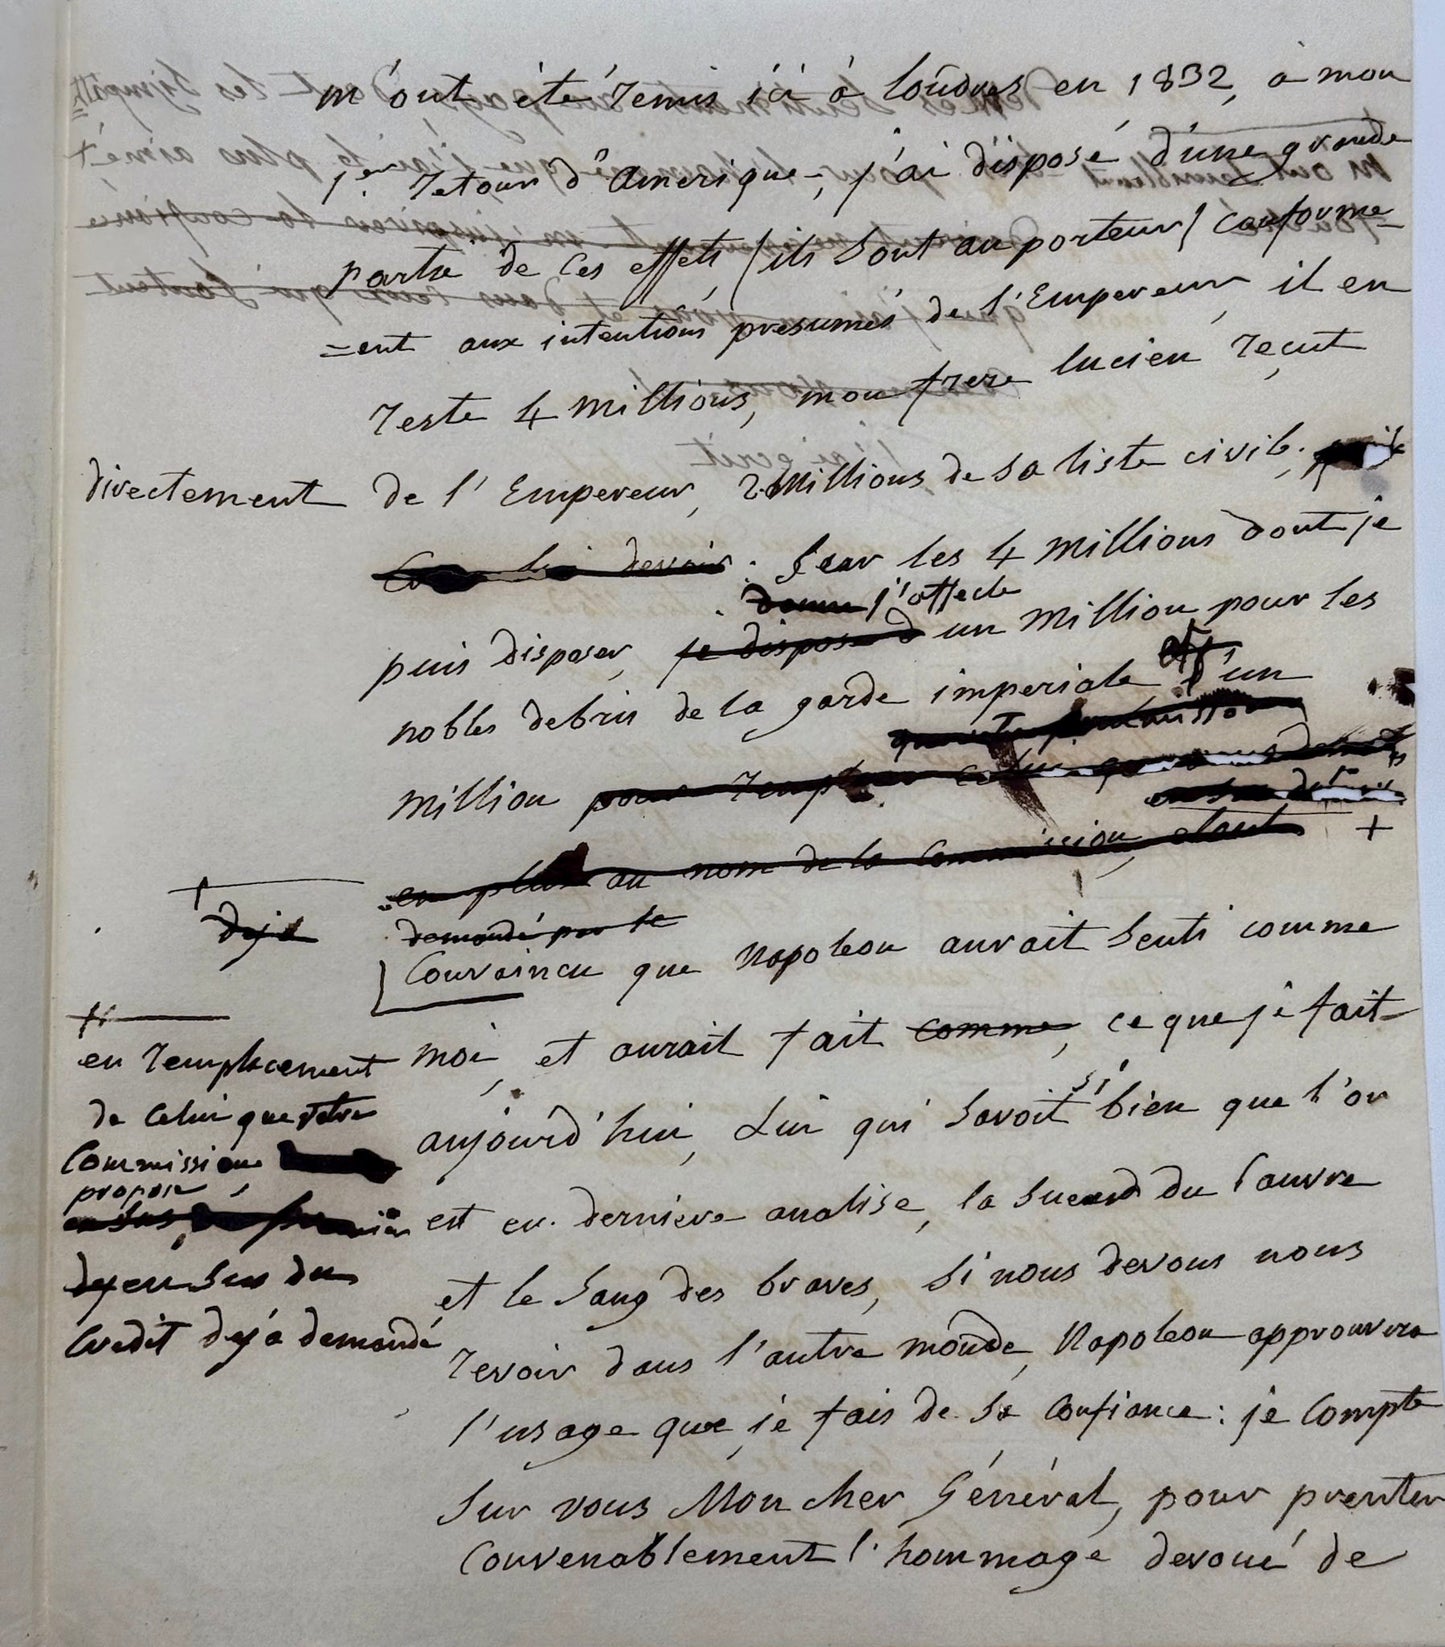 m'ont été remis ici à londres en 1832, à mon
1er retour d'amerique, j'ai disposé d'une grande
partie de ces effets (ils sont au porteur) conforme-
=ent aux intentions presumés de l'Empereur, il en
reste 4 millions, mon frere lucien reçut
directement de l'Empereur, 2 Millions de sa liste civile,
devoir. Sur les 4 millions dont je
donne j'affecte
puis disposer, je dispose d un million pour les
nobles debris de la garde imperiale, et un
million pour remplacer celui que vous
en plus au nom de la Commission, étant +
+
deja demandé par le
Convaincu que Napoleon aurait senti comme
moi, et aurait fait comme, ce que je fait
aujourd'hui, Lui qui savoit si bien que l'or
est en derniere analise, la sueur du pauvre
et le sang des braves, si nous devons nous
revoir dans l'autre monde, Napoleon approuvera
l'usage que je fais de sa confiance: je compte
sur vous Mon cher Général, pour presenter
convenablement l'hommage devoué de
en remplacement
de celui que votre
Commission
propose
en sus
en sus du
credit dejà demandé